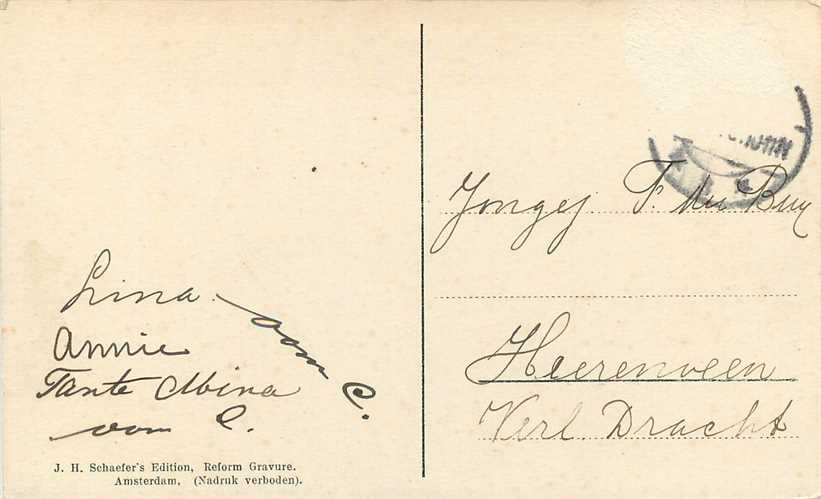 Lina.
oom C.
Annie
Tante Mina
oom C.
J. H. Schaefer's Edition, Reform Gravure.
Amsterdam, (Nadruk verboden).
Jongej. F. du Buy
Heerenveen
Verl. Dracht